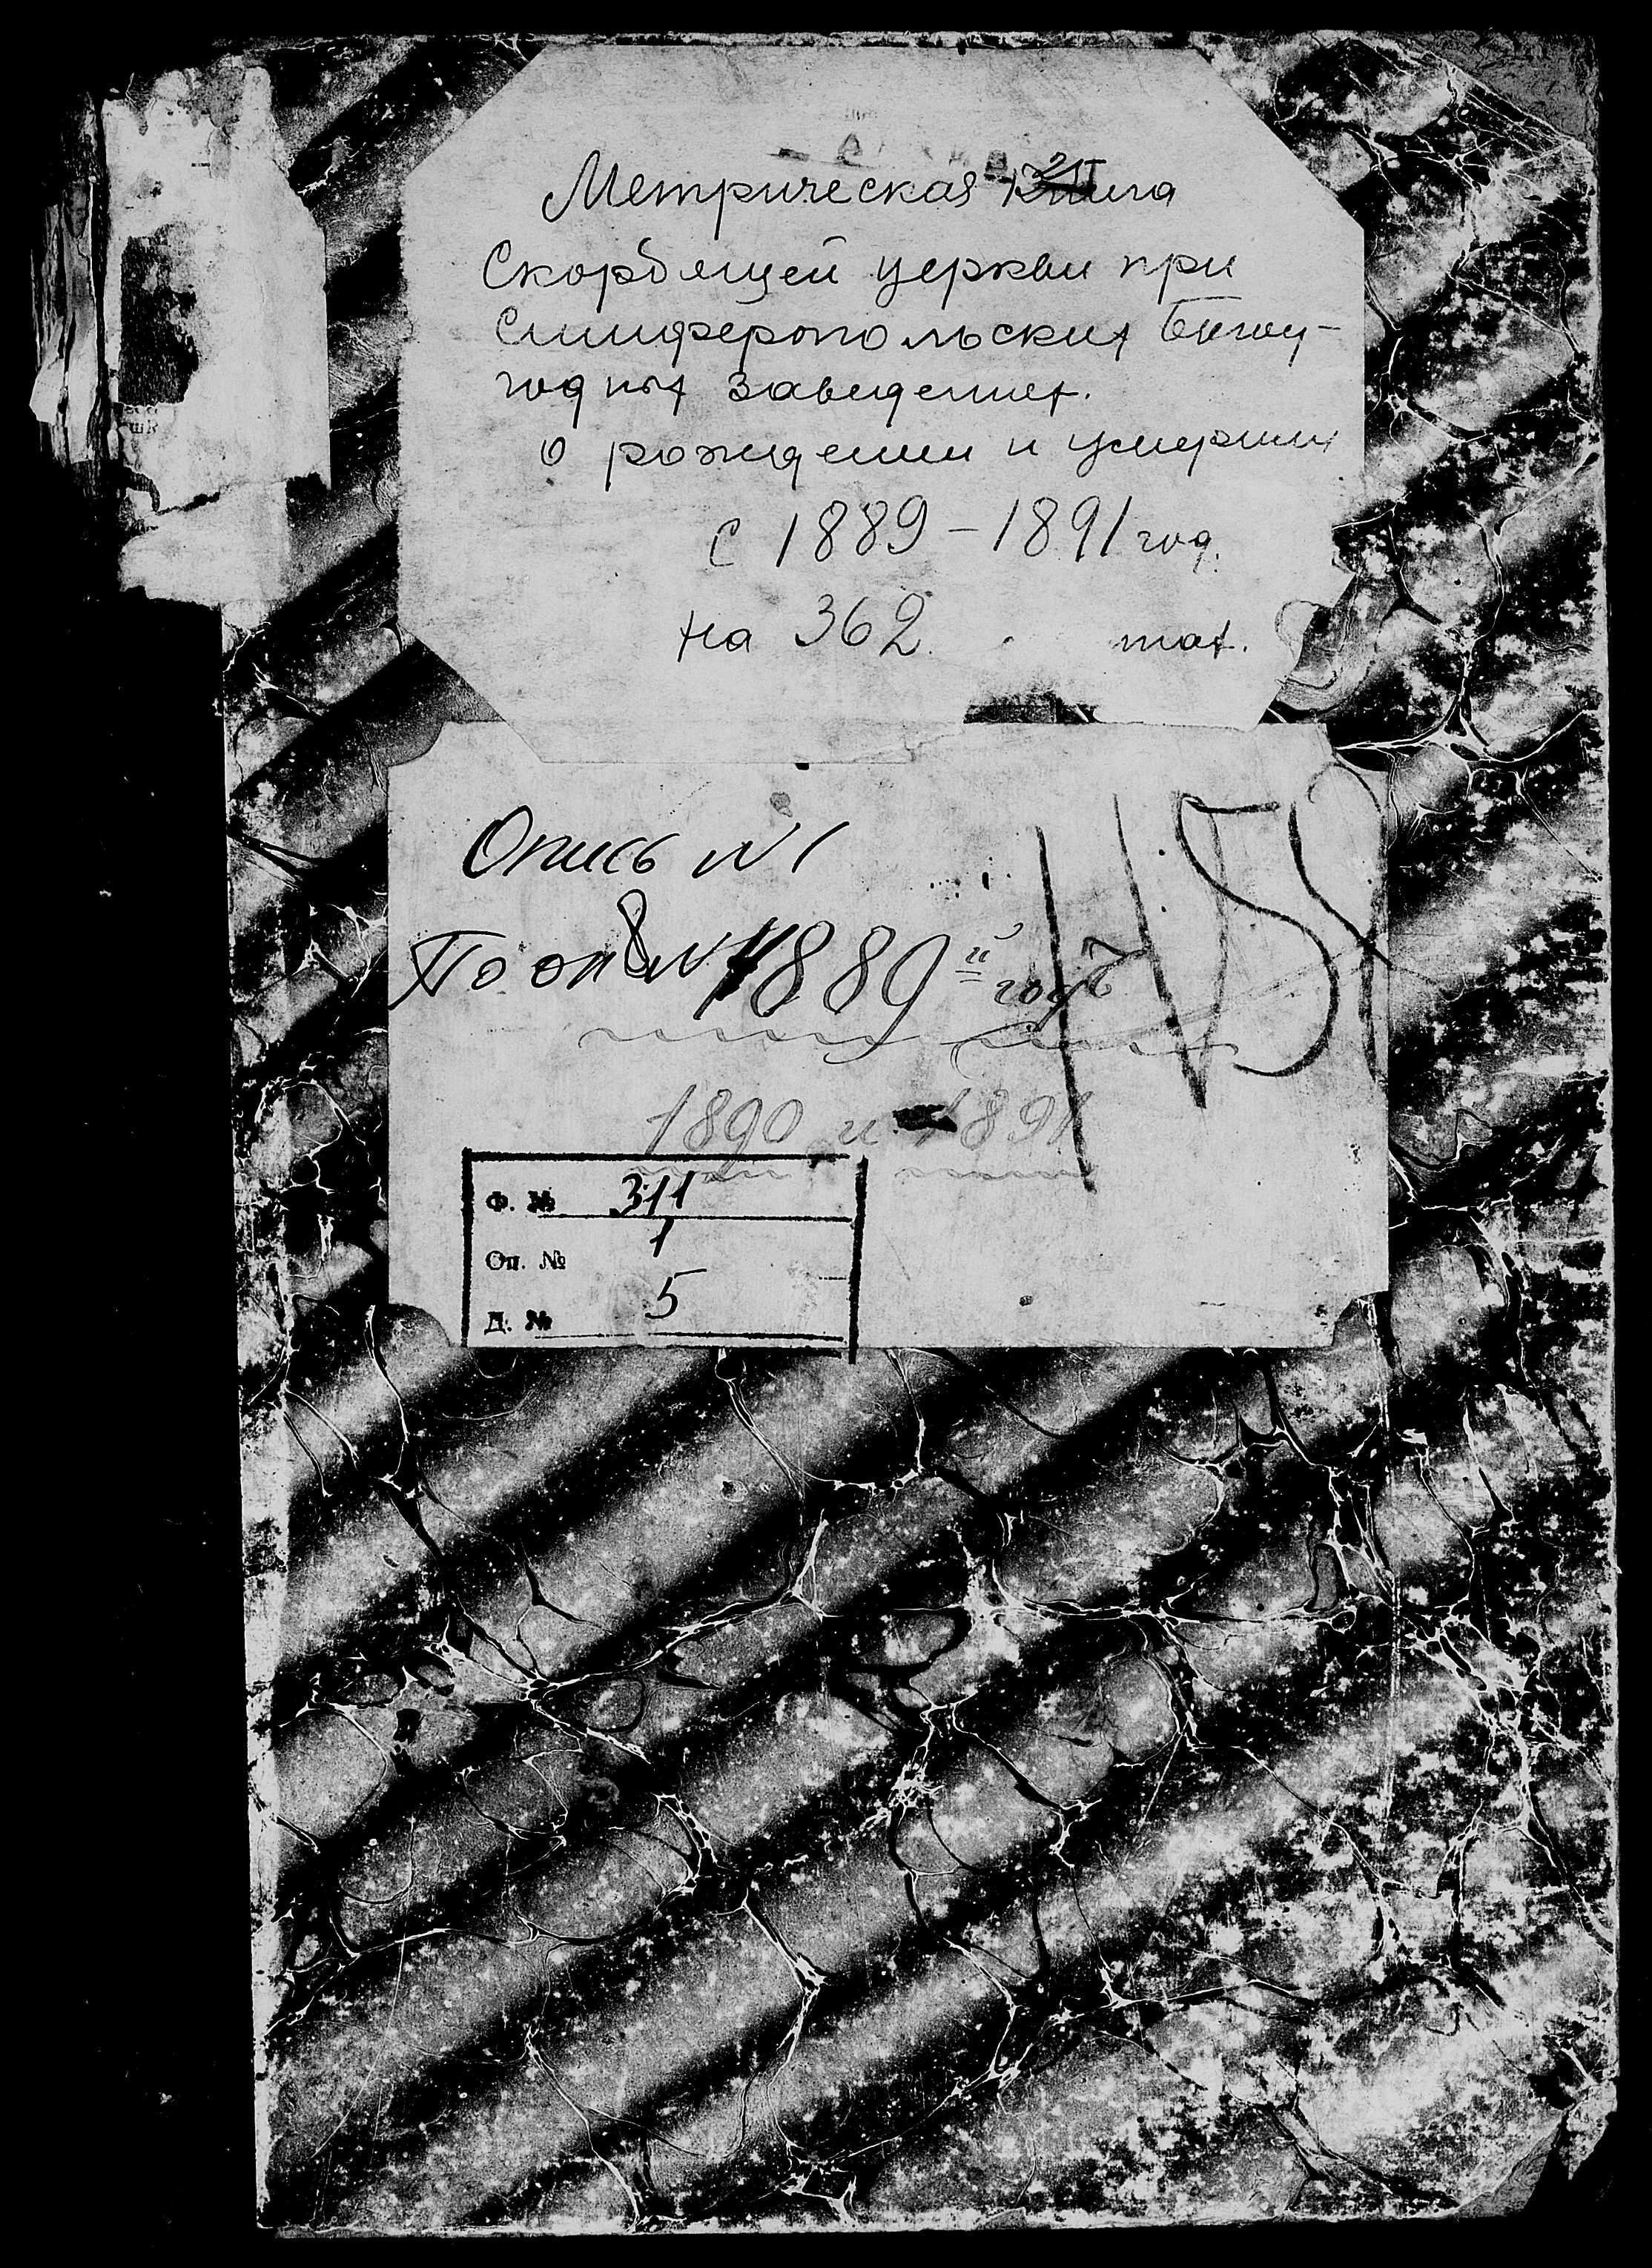 Метрическая книга
Скорбящей церкви при
Симферопольских Богоу-
годных заведениях.
о рождении и умерших
с 1889-1891 год.
на 362 лист.
Опись №1
По оп 8 № 1889й годъ
1890 и 1891
Ф. № 311
Оп. № 1
Д. № 5